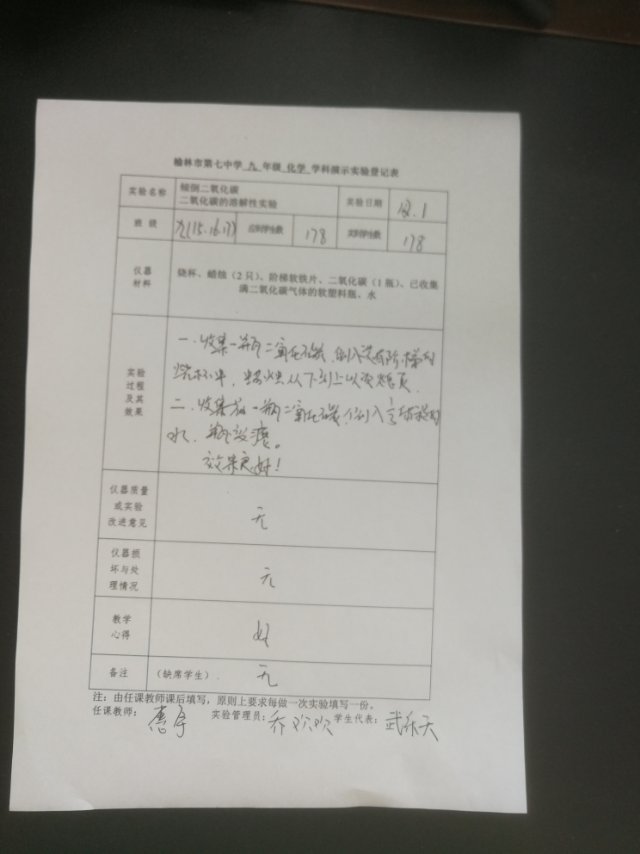 榆林市第七中学 九 年级 化学 学科演示实验登记表
实验名称 倾倒二氧化碳 实验日期 12.1
二氧化碳的溶解性实验
班 级 九(15.16.17) 应到学生数 178 实到学生数 178
仪器 烧杯、蜡烛（2只）、阶梯软铁片、二氧化碳（1瓶）、已收集
材料 满二氧化碳气体的软塑料瓶、水
实验
过程
及其
效果
一.收集一瓶二氧化碳,倒入装有阶梯的
烧杯中,蜡烛从下到上以次熄灭
二.收集 一瓶二氧化碳,倒入
水,瓶变瘪。
效果良好!
仪器质量
或实验 无
改进意见
仪器损
坏与处 无
理情况
教学 好
心得
备注 (缺席学生). 无
注：由任课教师课后填写，原则上要求每做一次实验填写一份。
任课教师： 实验管理员：乔欢欢 学生代表：武乐天